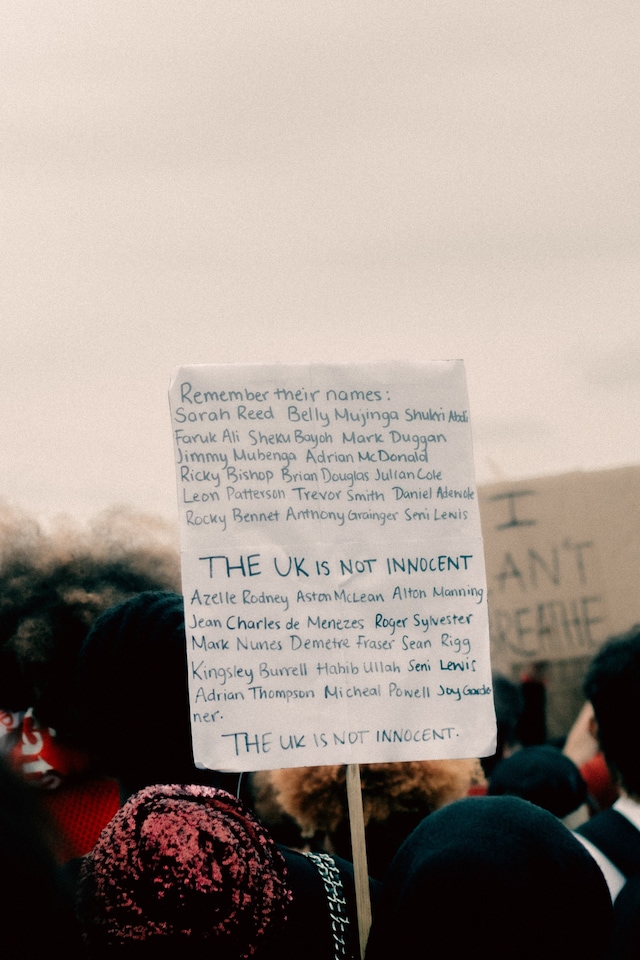 Remember their names:
Sarah Reed Belly Mujinga Shukri Abdi
Faruk Ali Sheku Bayoh Mark Duggan
Jimmy Mubenga Adrian McDonald
Ricky Bishop Brian Douglas Julian Cole
Leon Patterson Trevor Smith Daniel Adewole
Rocky Bennet Anthony Grainger Seni Lewis
THE UK IS NOT INNOCENT
Azelle Rodney Aston McLean Alton Manning
Jean Charles de Menezes Roger Sylvester
Mark Nunes Demetre Fraser Sean Rigg
Kingsley Burrell Habib Ullah Seni Lewis
Adrian Thompson Micheal Powell Joy Garde
ner.
THE UK IS NOT INNOCENT.
I
CAN'T
BREATHE